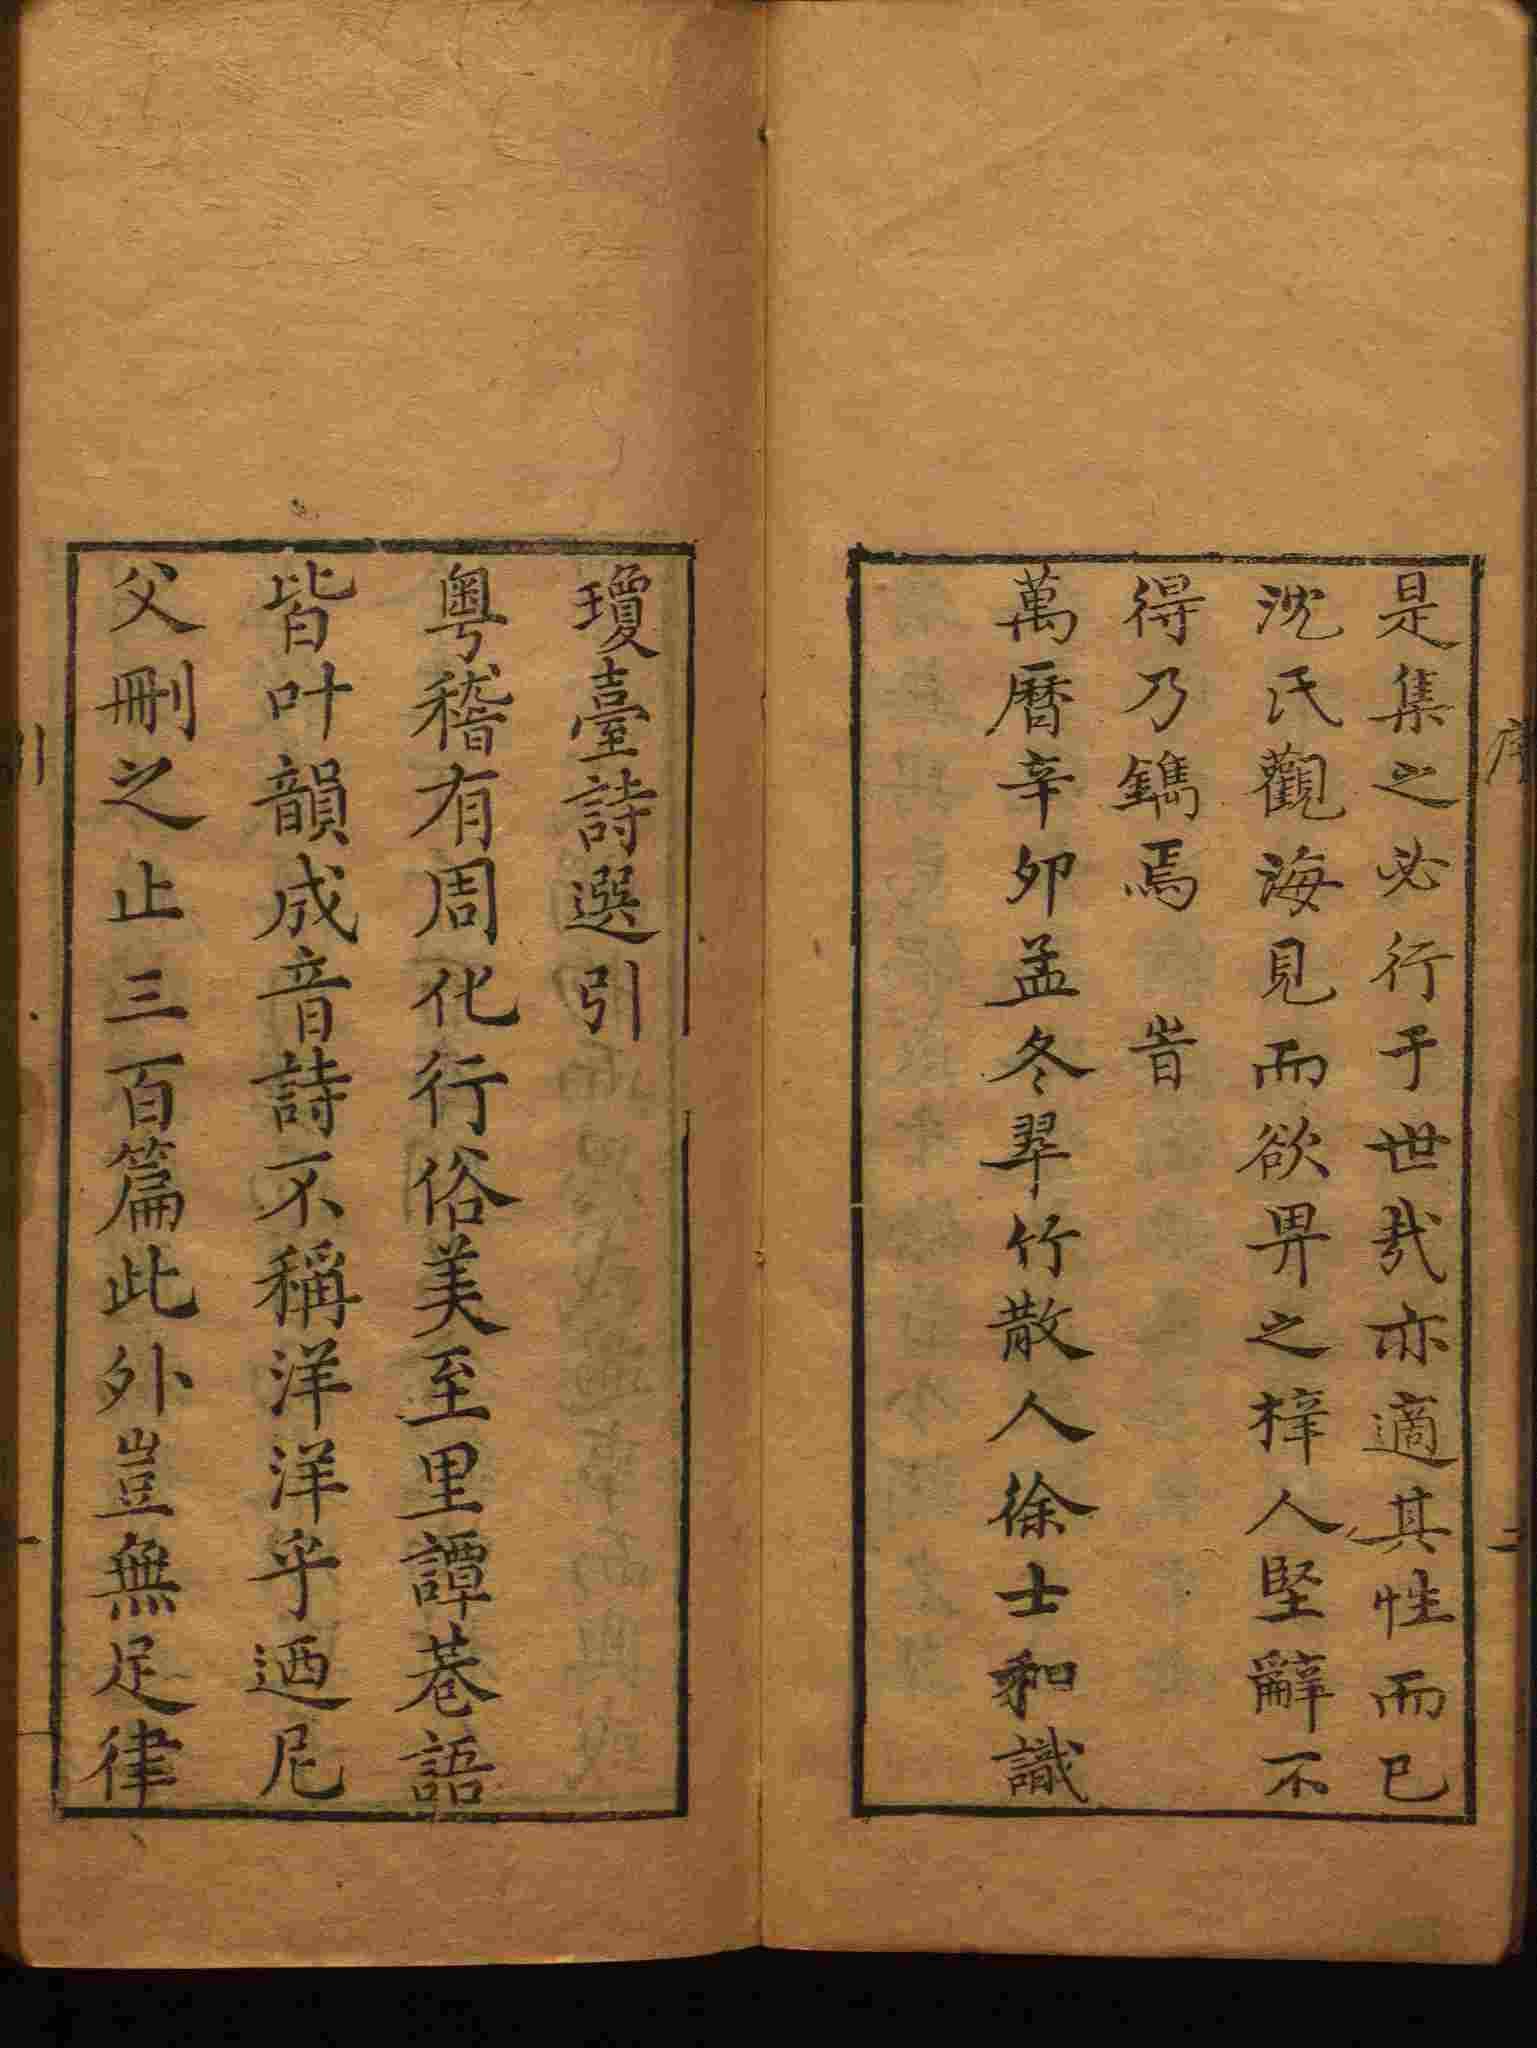 是集之必行于世哉亦適其性而已
沈氏觀海見而欲畀之梓人堅辭不
得乃鐫焉　旹
萬曆辛夘孟冬翠竹散人徐士和識
序
二
瓊臺詩選引
粤稽有周化行俗美至里譚巷語
皆叶韻成音詩不稱洋洋乎迺尼
父刪之止三百篇此外豈無足律
引
一